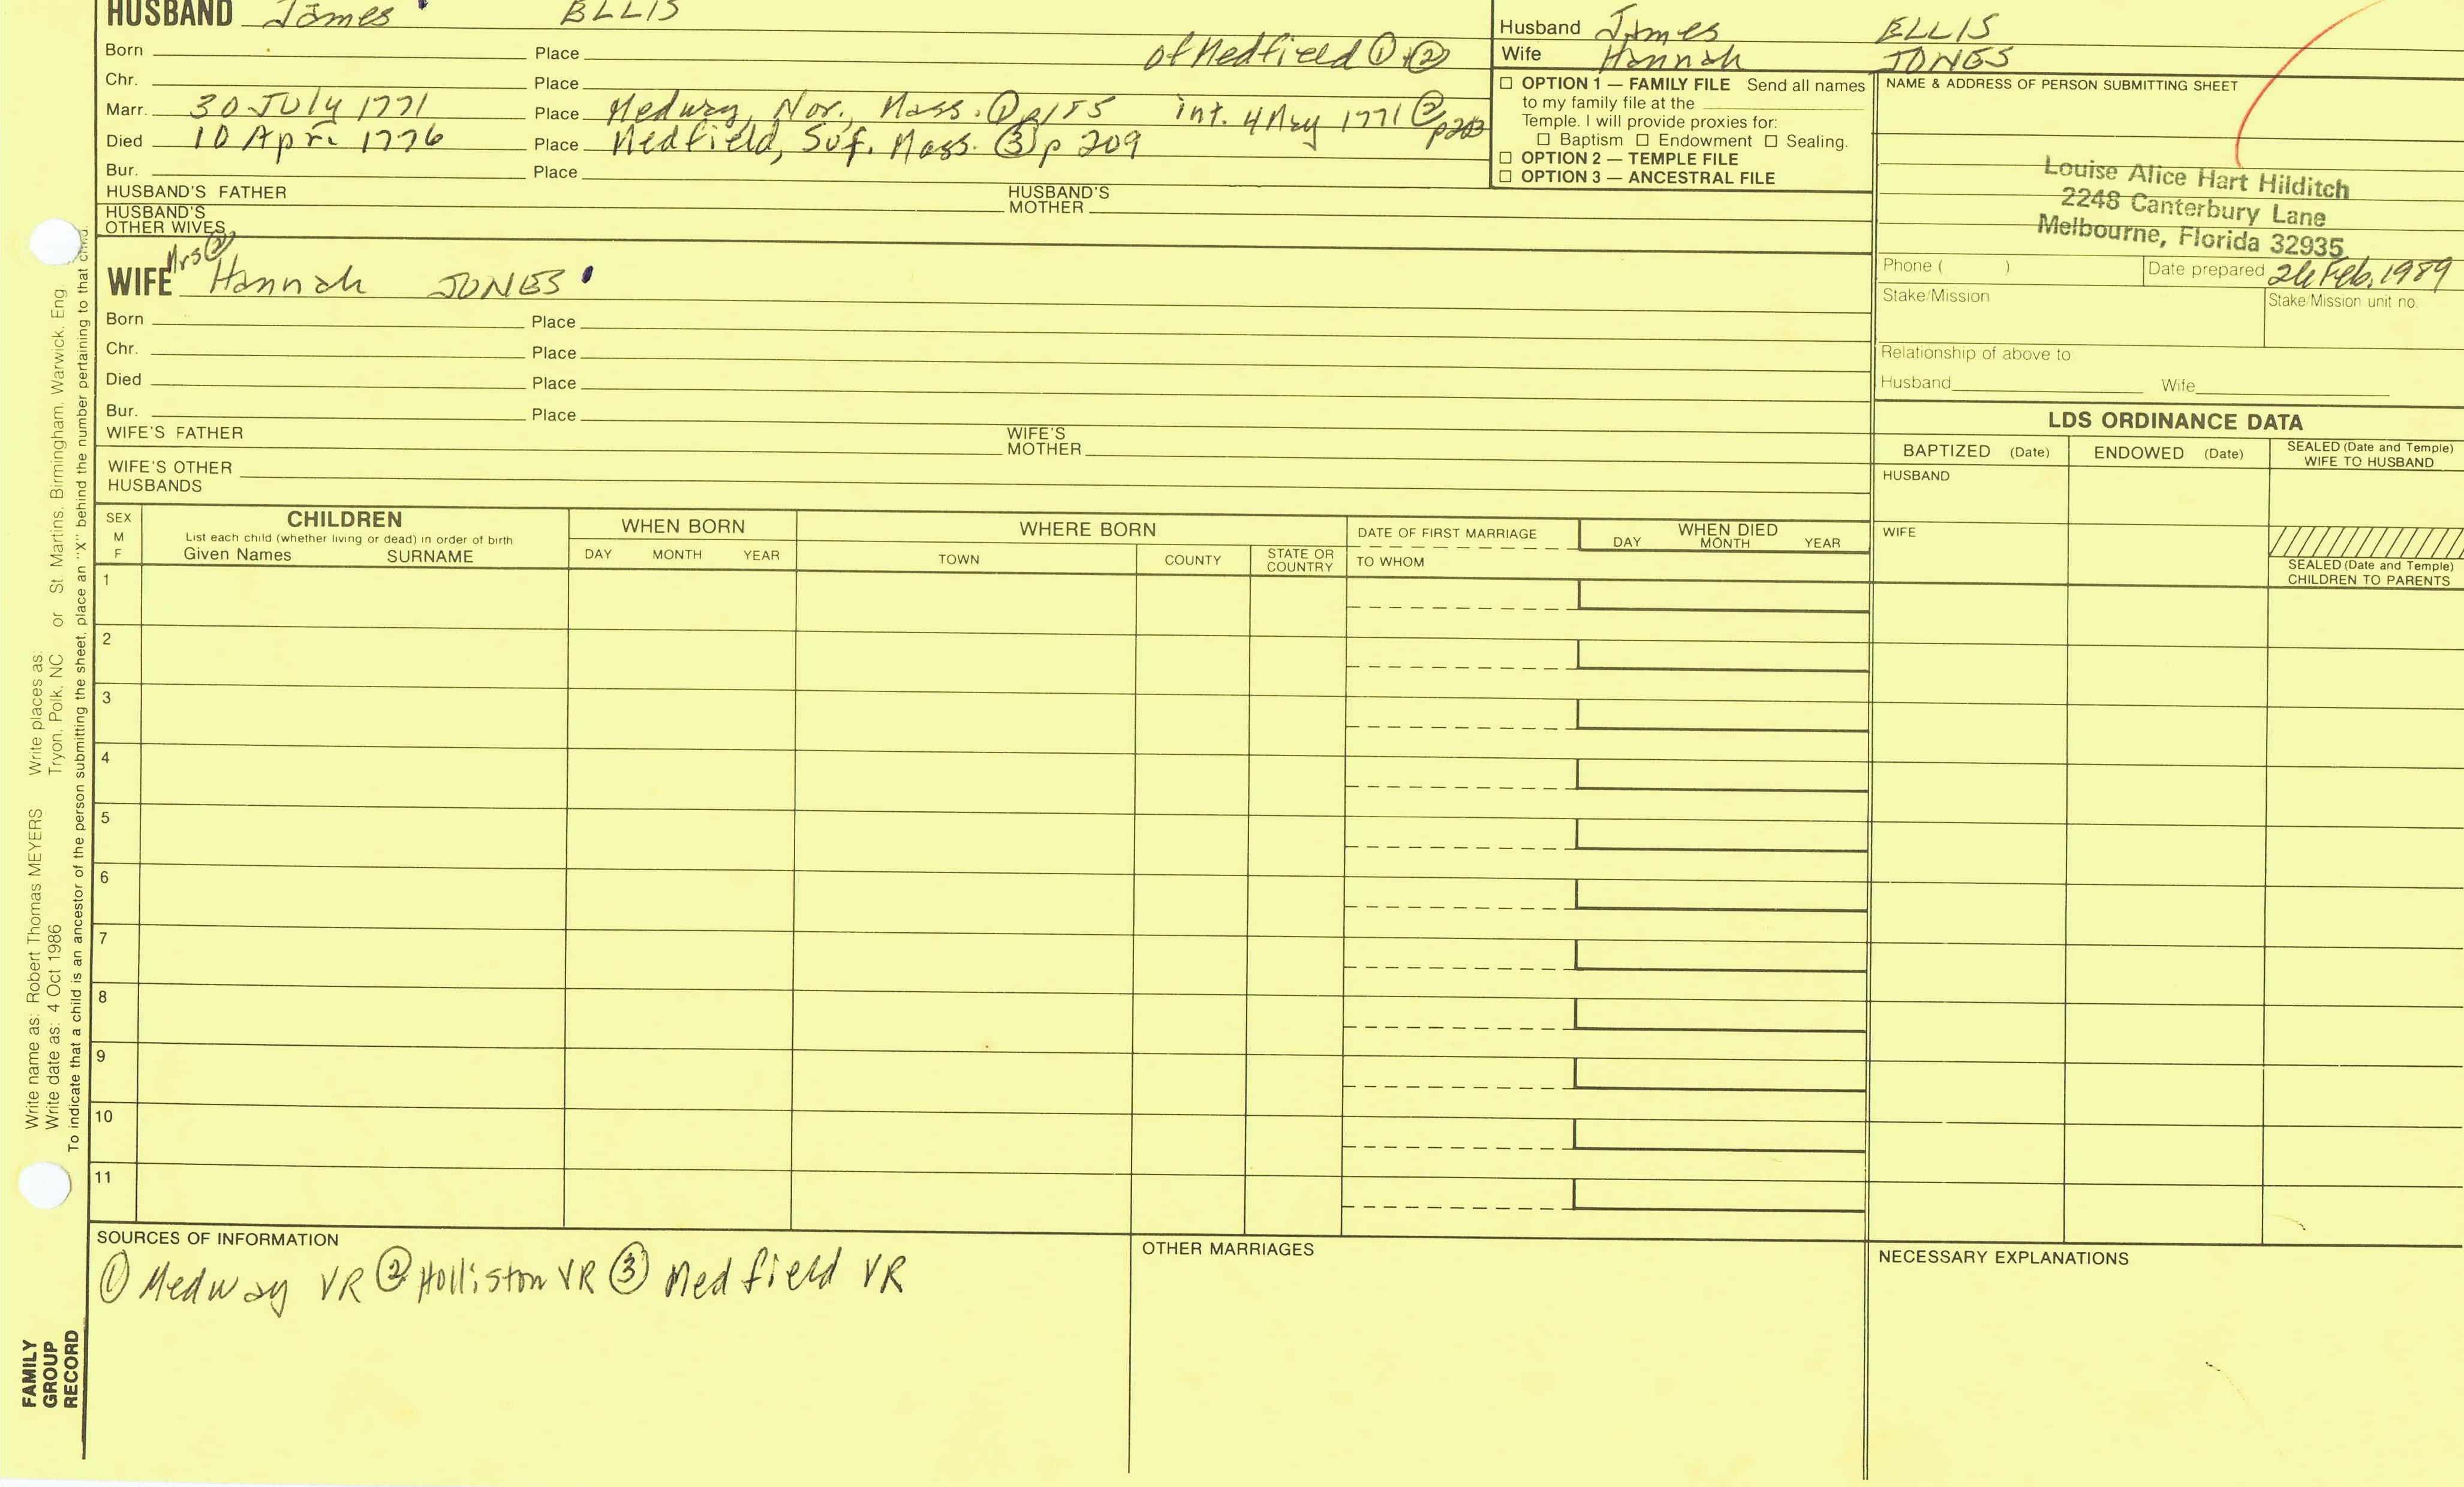 HUSBAND James ELLIS
Born Place of Medfield ① ②
Chr. Place
Marr. 30 July 1771 Place Medway, Nor., Mass. ① p155 int. 4 May 1771 ②
Died 10 Apr. 1776 Place Medfield, Suf. Mass. ③ p 209
Bur. Place
HUSBAND'S FATHER HUSBAND'S MOTHER
HUSBAND'S OTHER WIVES
Husband James ELLIS
Wife Hannah JONES
☐ OPTION 1 — FAMILY FILE Send all names
to my family file at the
Temple. I will provide proxies for:
☐ Baptism ☐ Endowment ☐ Sealing.
☐ OPTION 2 — TEMPLE FILE
☐ OPTION 3 — ANCESTRAL FILE
NAME & ADDRESS OF PERSON SUBMITTING SHEET
Louise Alice Hart Hilditch
2248 Canterbury Lane
Melbourne, Florida 32935
Phone ( ) Date prepared 26 Feb. 1989
Stake/Mission Stake/Mission unit no.
Relationship of above to
Husband Wife
Mrs ②
WIFE Hannah JONES
Born Place
Chr. Place
Died Place
Bur. Place
WIFE'S FATHER WIFE'S MOTHER
WIFE'S OTHER HUSBANDS
LDS ORDINANCE DATA
BAPTIZED (Date) ENDOWED (Date) SEALED (Date and Temple) WIFE TO HUSBAND
HUSBAND
WIFE
SEALED (Date and Temple) CHILDREN TO PARENTS
SEX M F
CHILDREN
List each child (whether living or dead) in order of birth
Given Names SURNAME
WHEN BORN
DAY MONTH YEAR
WHERE BORN
TOWN COUNTY STATE OR COUNTRY
DATE OF FIRST MARRIAGE
TO WHOM
WHEN DIED
DAY MONTH YEAR
1
2
3
4
5
6
7
8
9
10
11
SOURCES OF INFORMATION
① Medway VR ② Holliston VR ③ Medfield VR
OTHER MARRIAGES
NECESSARY EXPLANATIONS
Write name as: Robert Thomas MEYERS Write places as:
Write date as: 4 Oct 1986 Tryon, Polk, NC or St. Martins, Birmingham, Warwick, Eng
To indicate that a child is an ancestor of the person submitting the sheet, place an "X" behind the number pertaining to that child.
FAMILY
GROUP
RECORD